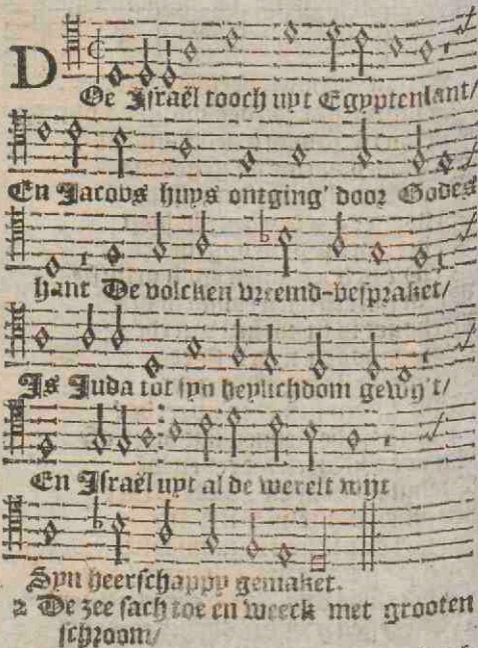 DOe Israël tooch uyt Egyptenlant/
En Jacobs huys ontging' door Godes
hant De volcken vreemd-bespraket/
Is Juda tot syn heylichdom gewy't/
En Israël uyt al de werelt wijt
Syn heerschappy gemaket.
2 De zee sach toe en weeck met grooten
schroom/